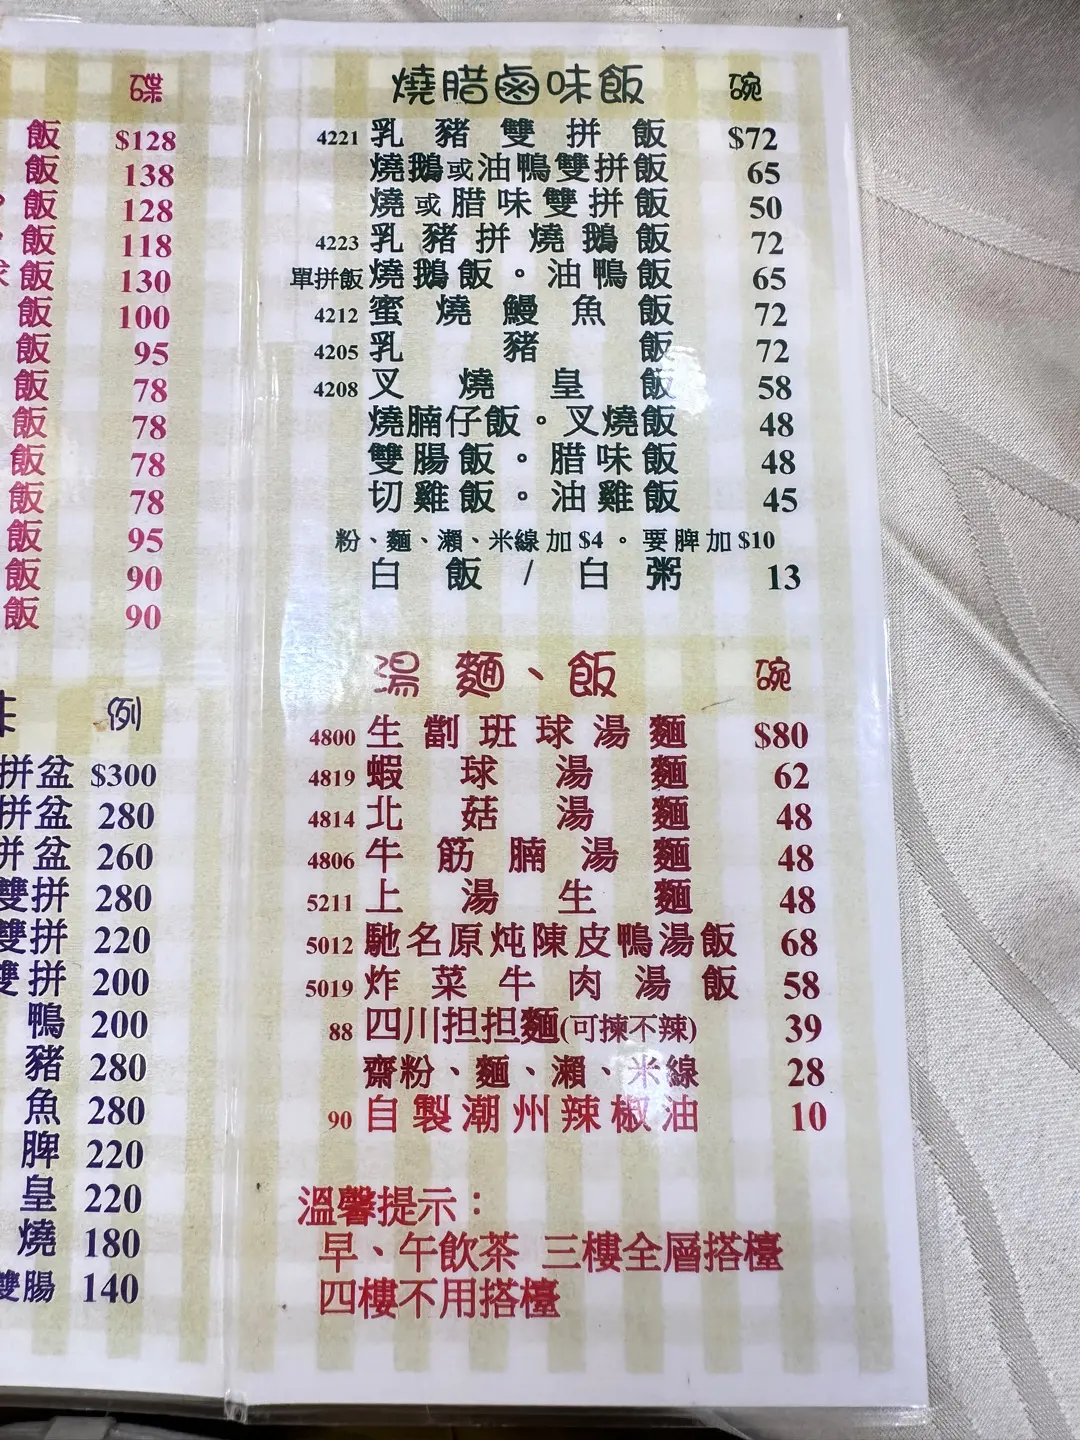 碟
飯 $128
飯 138
飯 128
飯 118
球飯 130
飯 100
飯 95
飯 78
飯 78
飯 78
飯 78
飯 95
飯 90
飯 90
味 例
拼盆 $300
拼盆 280
拼盆 260
雙拼 280
雙拼 220
雙拼 200
鴨 200
豬 280
魚 280
脾 220
皇 220
燒 180
雙腸 140
燒腊鹵味飯 碗
4221 乳豬雙拼飯 $72
燒鵝或油鴨雙拼飯 65
燒或腊味雙拼飯 50
4223 乳豬拼燒鵝飯 72
單拼飯 燒鵝飯。油鴨飯 65
4212 蜜燒鰻魚飯 72
4205 乳豬飯 72
4208 叉燒皇飯 58
燒腩仔飯。叉燒飯 48
雙腸飯。腊味飯 48
切雞飯。油雞飯 45
粉、麵、瀨、米線加$4。要脾加$10
白飯/白粥 13
湯麵、飯 碗
4800 生劏班球湯麵 $80
4819 蝦球湯麵 62
4814 北菇湯麵 48
4806 牛筋腩湯麵 48
5211 上湯生麵 48
5012 馳名原炖陳皮鴨湯飯 68
5019 炸菜牛肉湯飯 58
88 四川担担麵(可揀不辣) 39
齋粉、麵、瀨、米線 28
90 自製潮州辣椒油 10
溫馨提示：
早、午飲茶 三樓全層搭檯
四樓不用搭檯